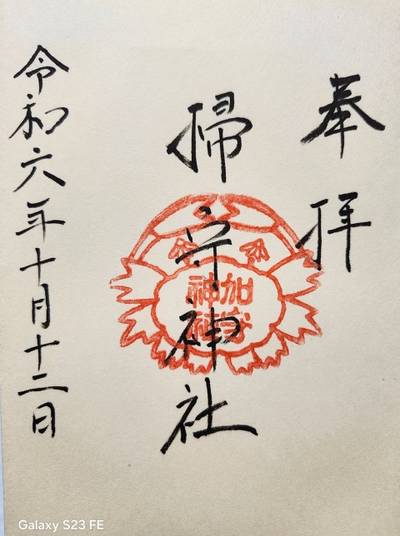 奉拝
掃守神社
加守
神社
令和六年十月十二日
Galaxy S23 FE